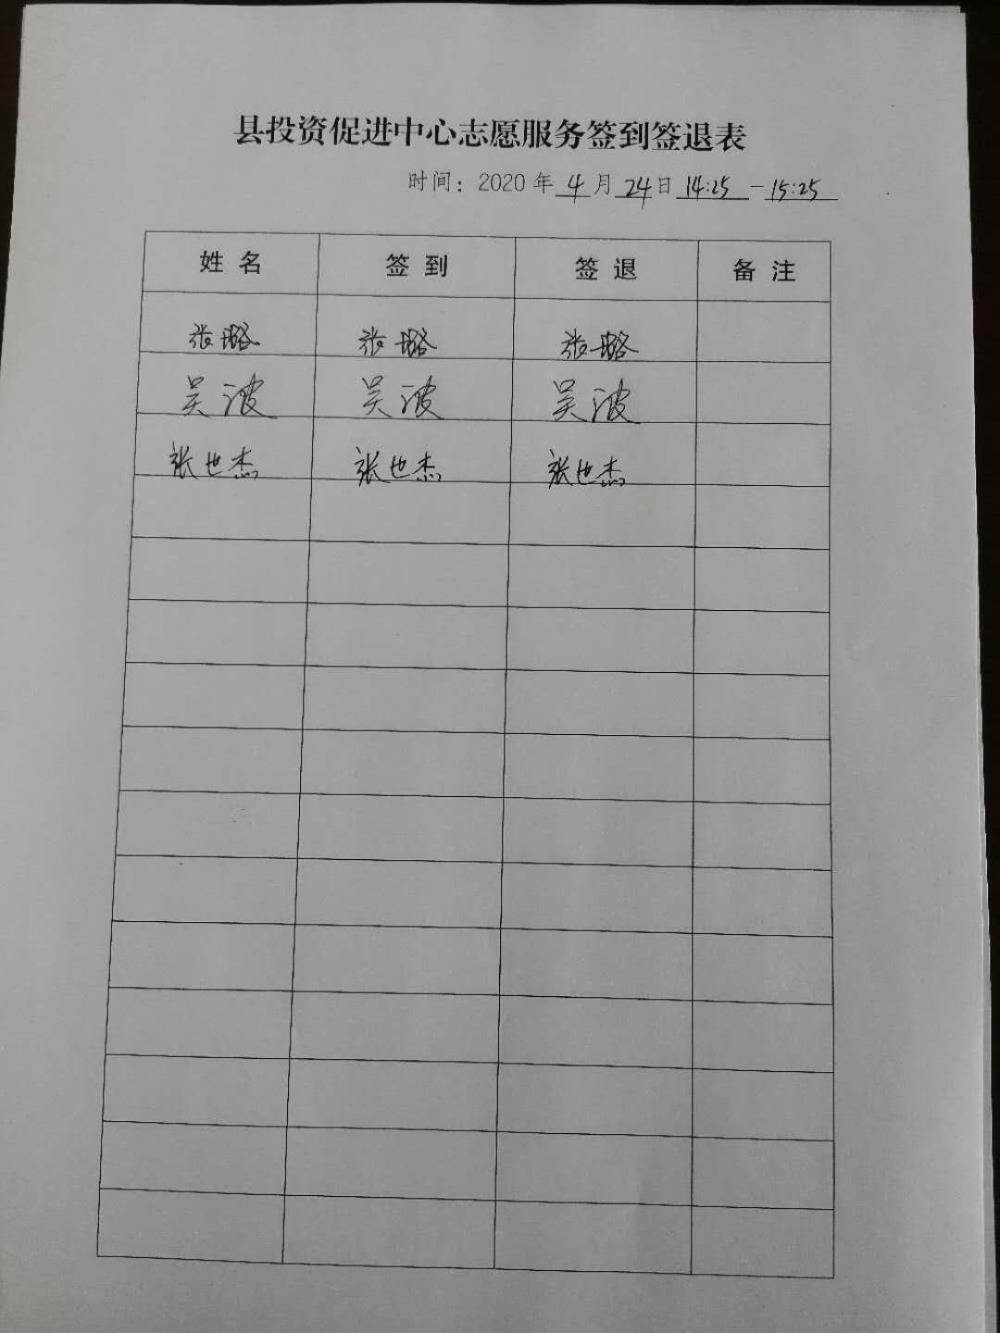 县投资促进中心志愿服务签到签退表
时间：2020年4月24日14:25-15:25
姓名 签到 签退 备注
张璐 张璐 张璐
吴波 吴波 吴波
张世杰 张世杰 张世杰